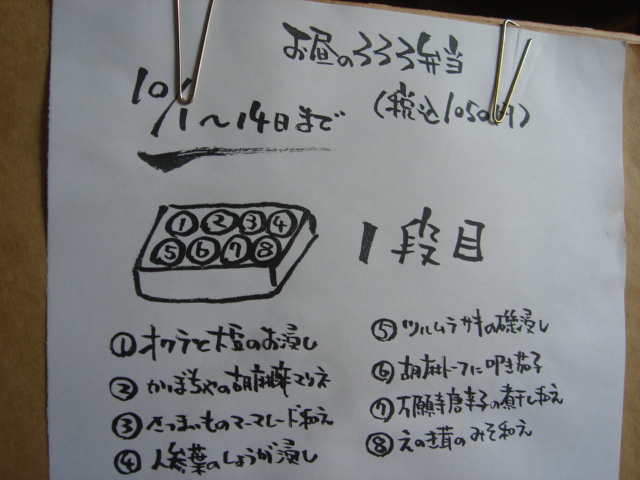 お昼のろろろ弁当
10/1〜14日まで
(税込1050円)
① ② ③ ④
⑤ ⑥ ⑦ ⑧
1段目
①オクラと大豆のお浸し
②かぼちゃの胡麻酢マリネ
③さつまいものマーマレード和え
④人参葉のしょうが浸し
⑤ツルムラサキの磯浸し
⑥胡麻トーフに叩き茄子
⑦万願寺唐辛子の煮干し和え
⑧えのき茸のみそ和え